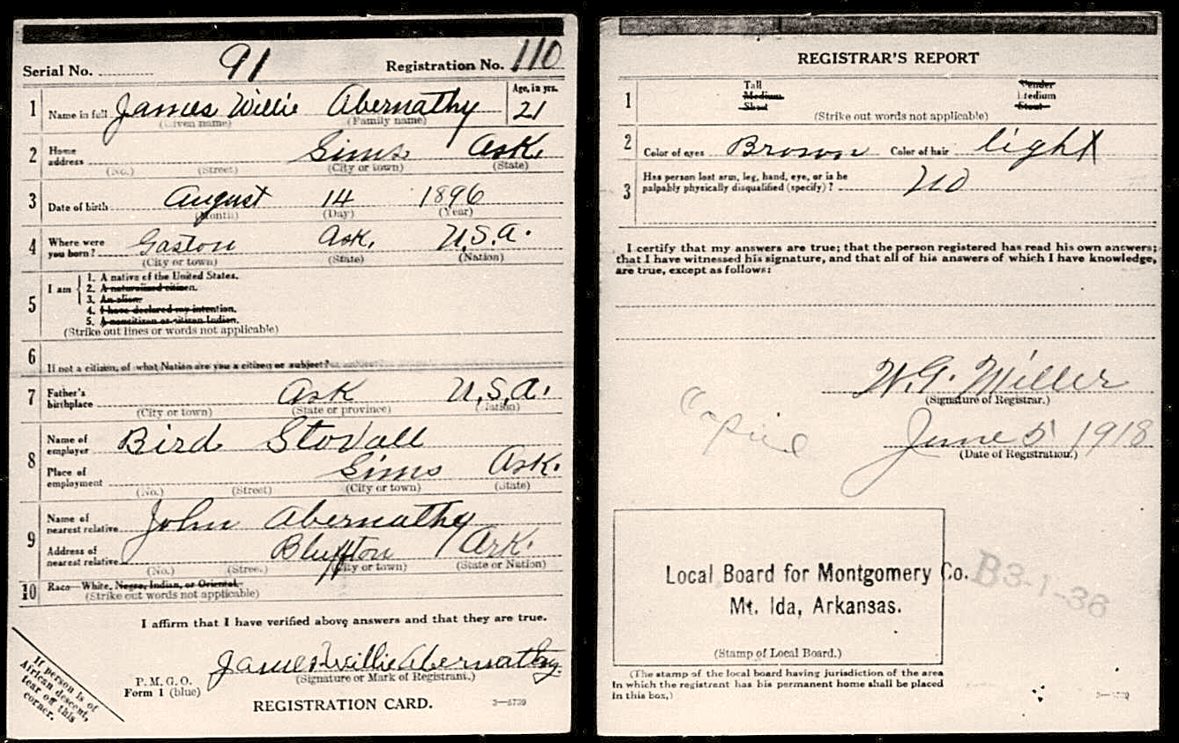 Serial No. 91 Registration No. 110
1 Name in full James Willie Abernathy Age, in yrs. 21
(Given name) (Family name)
2 Home address Sims Ark.
(No.) (Street) (City or town) (State)
3 Date of birth August 14 1896
(Month) (Day) (Year)
4 Where were you born? Gaston Ark. U.S.A.
(City or town) (State) (Nation)
5 I am
1. A native of the United States.
2. A naturalized citizen.
3. An alien.
4. I have declared my intention.
5. A noncitizen or citizen Indian.
(Strike out lines or words not applicable)
6 If not a citizen, of what Nation are you a citizen or subject?
7 Father's birthplace Ark U.S.A.
(City or town) (State or province) (Nation)
8 Name of employer Bird Stovall
Place of employment Sims Ark.
(No.) (Street) (City or town) (State)
9 Name of nearest relative John Abernathy
Address of nearest relative Bluffton Ark.
(No.) (Street) (City or town) (State or Nation)
10 Race—White, Negro, Indian, or Oriental.
(Strike out words not applicable)
I affirm that I have verified above answers and that they are true.
James Willie Abernathy
(Signature or Mark of Registrant.)
P. M. G. O.
Form 1 (blue)
REGISTRATION CARD.
3—5739
If person is
African descent,
tear off this
corner.
REGISTRAR'S REPORT
1 Tall Slender
Medium Medium
Short Stout
(Strike out words not applicable)
2 Color of eyes Brown Color of hair light
3 Has person lost arm, leg, hand, eye, or is he
palpably physically disqualified (specify)? no
I certify that my answers are true; that the person registered has read his own answers;
that I have witnessed his signature, and that all of his answers of which I have knowledge,
are true, except as follows:
W.G. Miller
(Signature of Registrar.)
June 5 1918
(Date of Registration.)
Local Board for Montgomery Co.
Mt. Ida, Arkansas.
B3-1-36
(Stamp of Local Board.)
(The stamp of the local board having jurisdiction of the area
in which the registrant has his permanent home shall be placed
in this box.)
3—5739